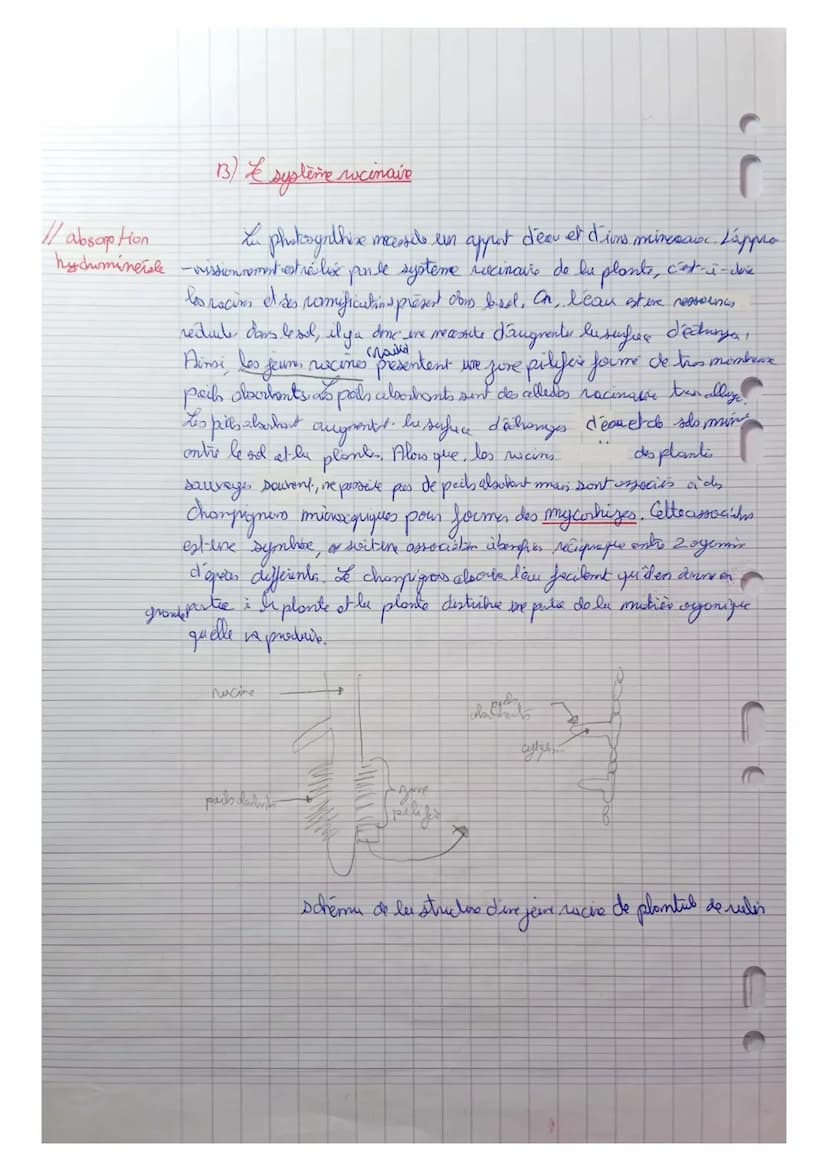 B) Le système racinaire
// absorption
hydrominérale
La photosynthèse nécessite un apport d'eau et d'ions mineraux. L'appro
-visionnement est réalisé par le système racinaire de la plante, c'est-à-dire
les racines et des ramifications présent dans le sol. Or, l'eau est une ressources
réduite dans le sol, il y a donc une necessité d'augmenter la surface d'échanges.
Ainsi, les jeunes racines présentent une zone pilifère formé de tres nombreux
poils absorbants. Les poils absorbants sont des cellules racinaire tres allongé.
Les poils absorbant augmente la surface d'échanges d'eau et de sels miné
entre le sol et la plante. Alors que, les racines des plantes
sauvages souvent, ne possède pas de poils absorbant mais sont associés à des
champignons microscopiques pour former des mycorhizes. Cette association
est une symbiose, soit une association à bénéfices réciproque entre 2 organismes
d'espèces différents. Le champignons absorbe l'eau facilement qu'il en donne
grande partie à la plante et la plante distribue une partie de la matière organique
quelle va produire.
racine
poils absorbants
zone
pilifère
poils
absorbants
schéma de la structure d'une jeune racine de plantule de radis